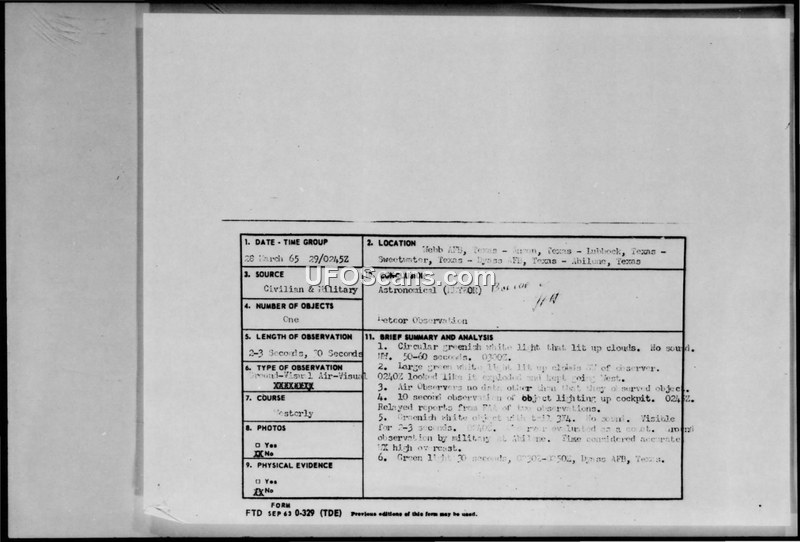 1. DATE - TIME GROUP
28 March 65 29/0245Z
2. LOCATION
Webb AFB, Texas - Texas - Lubbock, Texas -
Sweetwater, Texas - Dyess AFB, Texas - Abilene, Texas
3. SOURCE
Civilian & Military
UFOScans.com
Astronomical (METEOR)
4. NUMBER OF OBJECTS
One
Meteor Observation
5. LENGTH OF OBSERVATION
2-3 Seconds, 70 Seconds
6. TYPE OF OBSERVATION
Ground-Visual Air-Visual
7. COURSE
Westerly
8. PHOTOS
□ Yes
No
9. PHYSICAL EVIDENCE
□ Yes
No
11. BRIEF SUMMARY AND ANALYSIS
1. Circular greenish white light that lit up clouds. No sound.
50-60 seconds. 0300Z.
2. Large green white light lit up clouds of observer.
0240Z looked like it exploded and kept going West.
3. Air Observers no data other than that they observed object.
4. 10 second observation of object lighting up cockpit.
Relayed reports from of two observations.
5. Greenish white object with tail No sound. Visible
for 2-3 seconds. evaluated as a
observation by military at Abilene. Time considered accurate
high overcast.
6. Green light 30 seconds, Dyess AFB, Texas.
FORM
FTD SEP 63 0-329 (TDE) Previous editions of this form may be used.